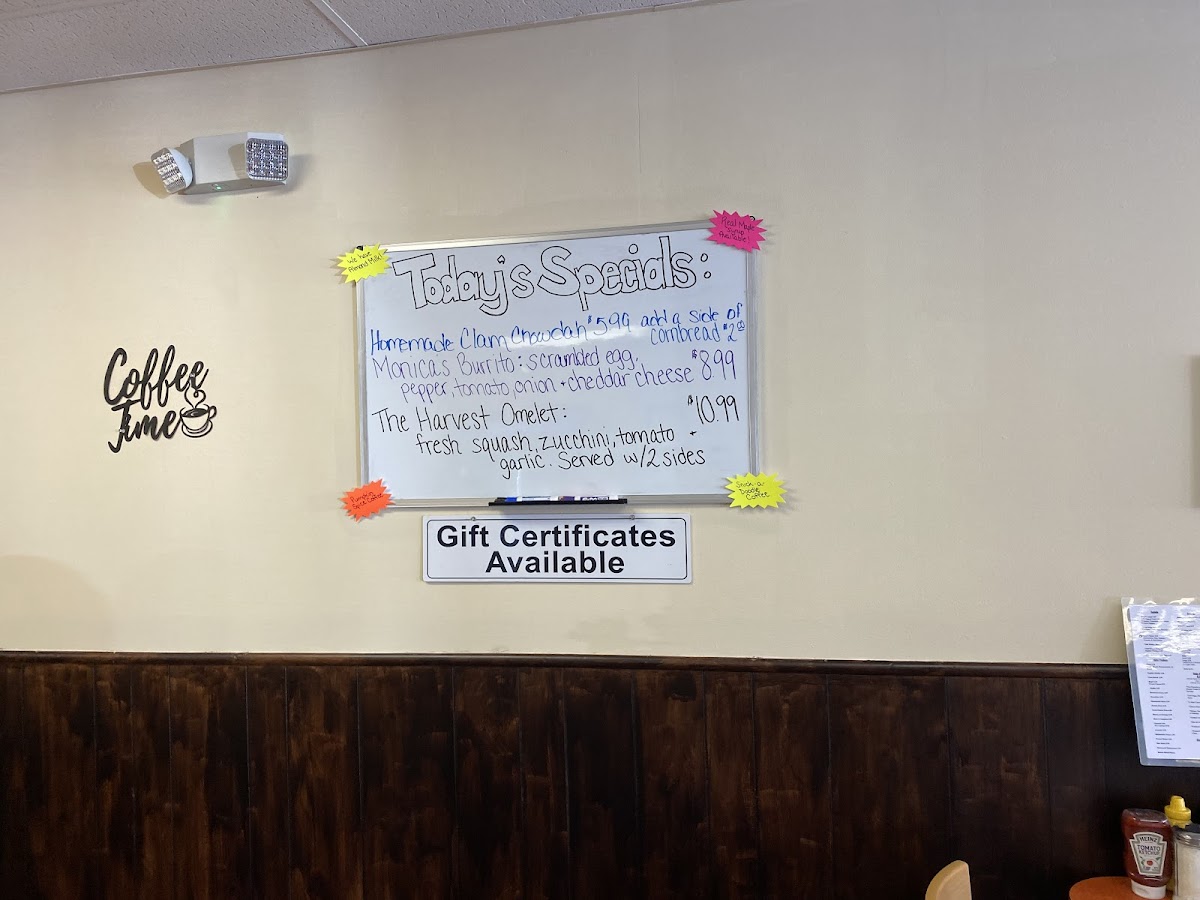 We have
Almond Milk!
Real Made
Syrup
Available!
Today's Specials:
Homemade Clam Chowdah $5.99 add a side of
cornbread $2.00
Monicas Burrito: scrambled egg,
pepper, tomato, onion + cheddar cheese $8.99
The Harvest Omelet: $10.99
fresh squash, zucchini, tomato +
garlic. Served w/2 sides
Pumpkin
Spice Coffee
Snick-a-
Doodle
Coffee
Gift Certificates
Available
Coffee
Time
HEINZ
TOMATO
KETCHUP